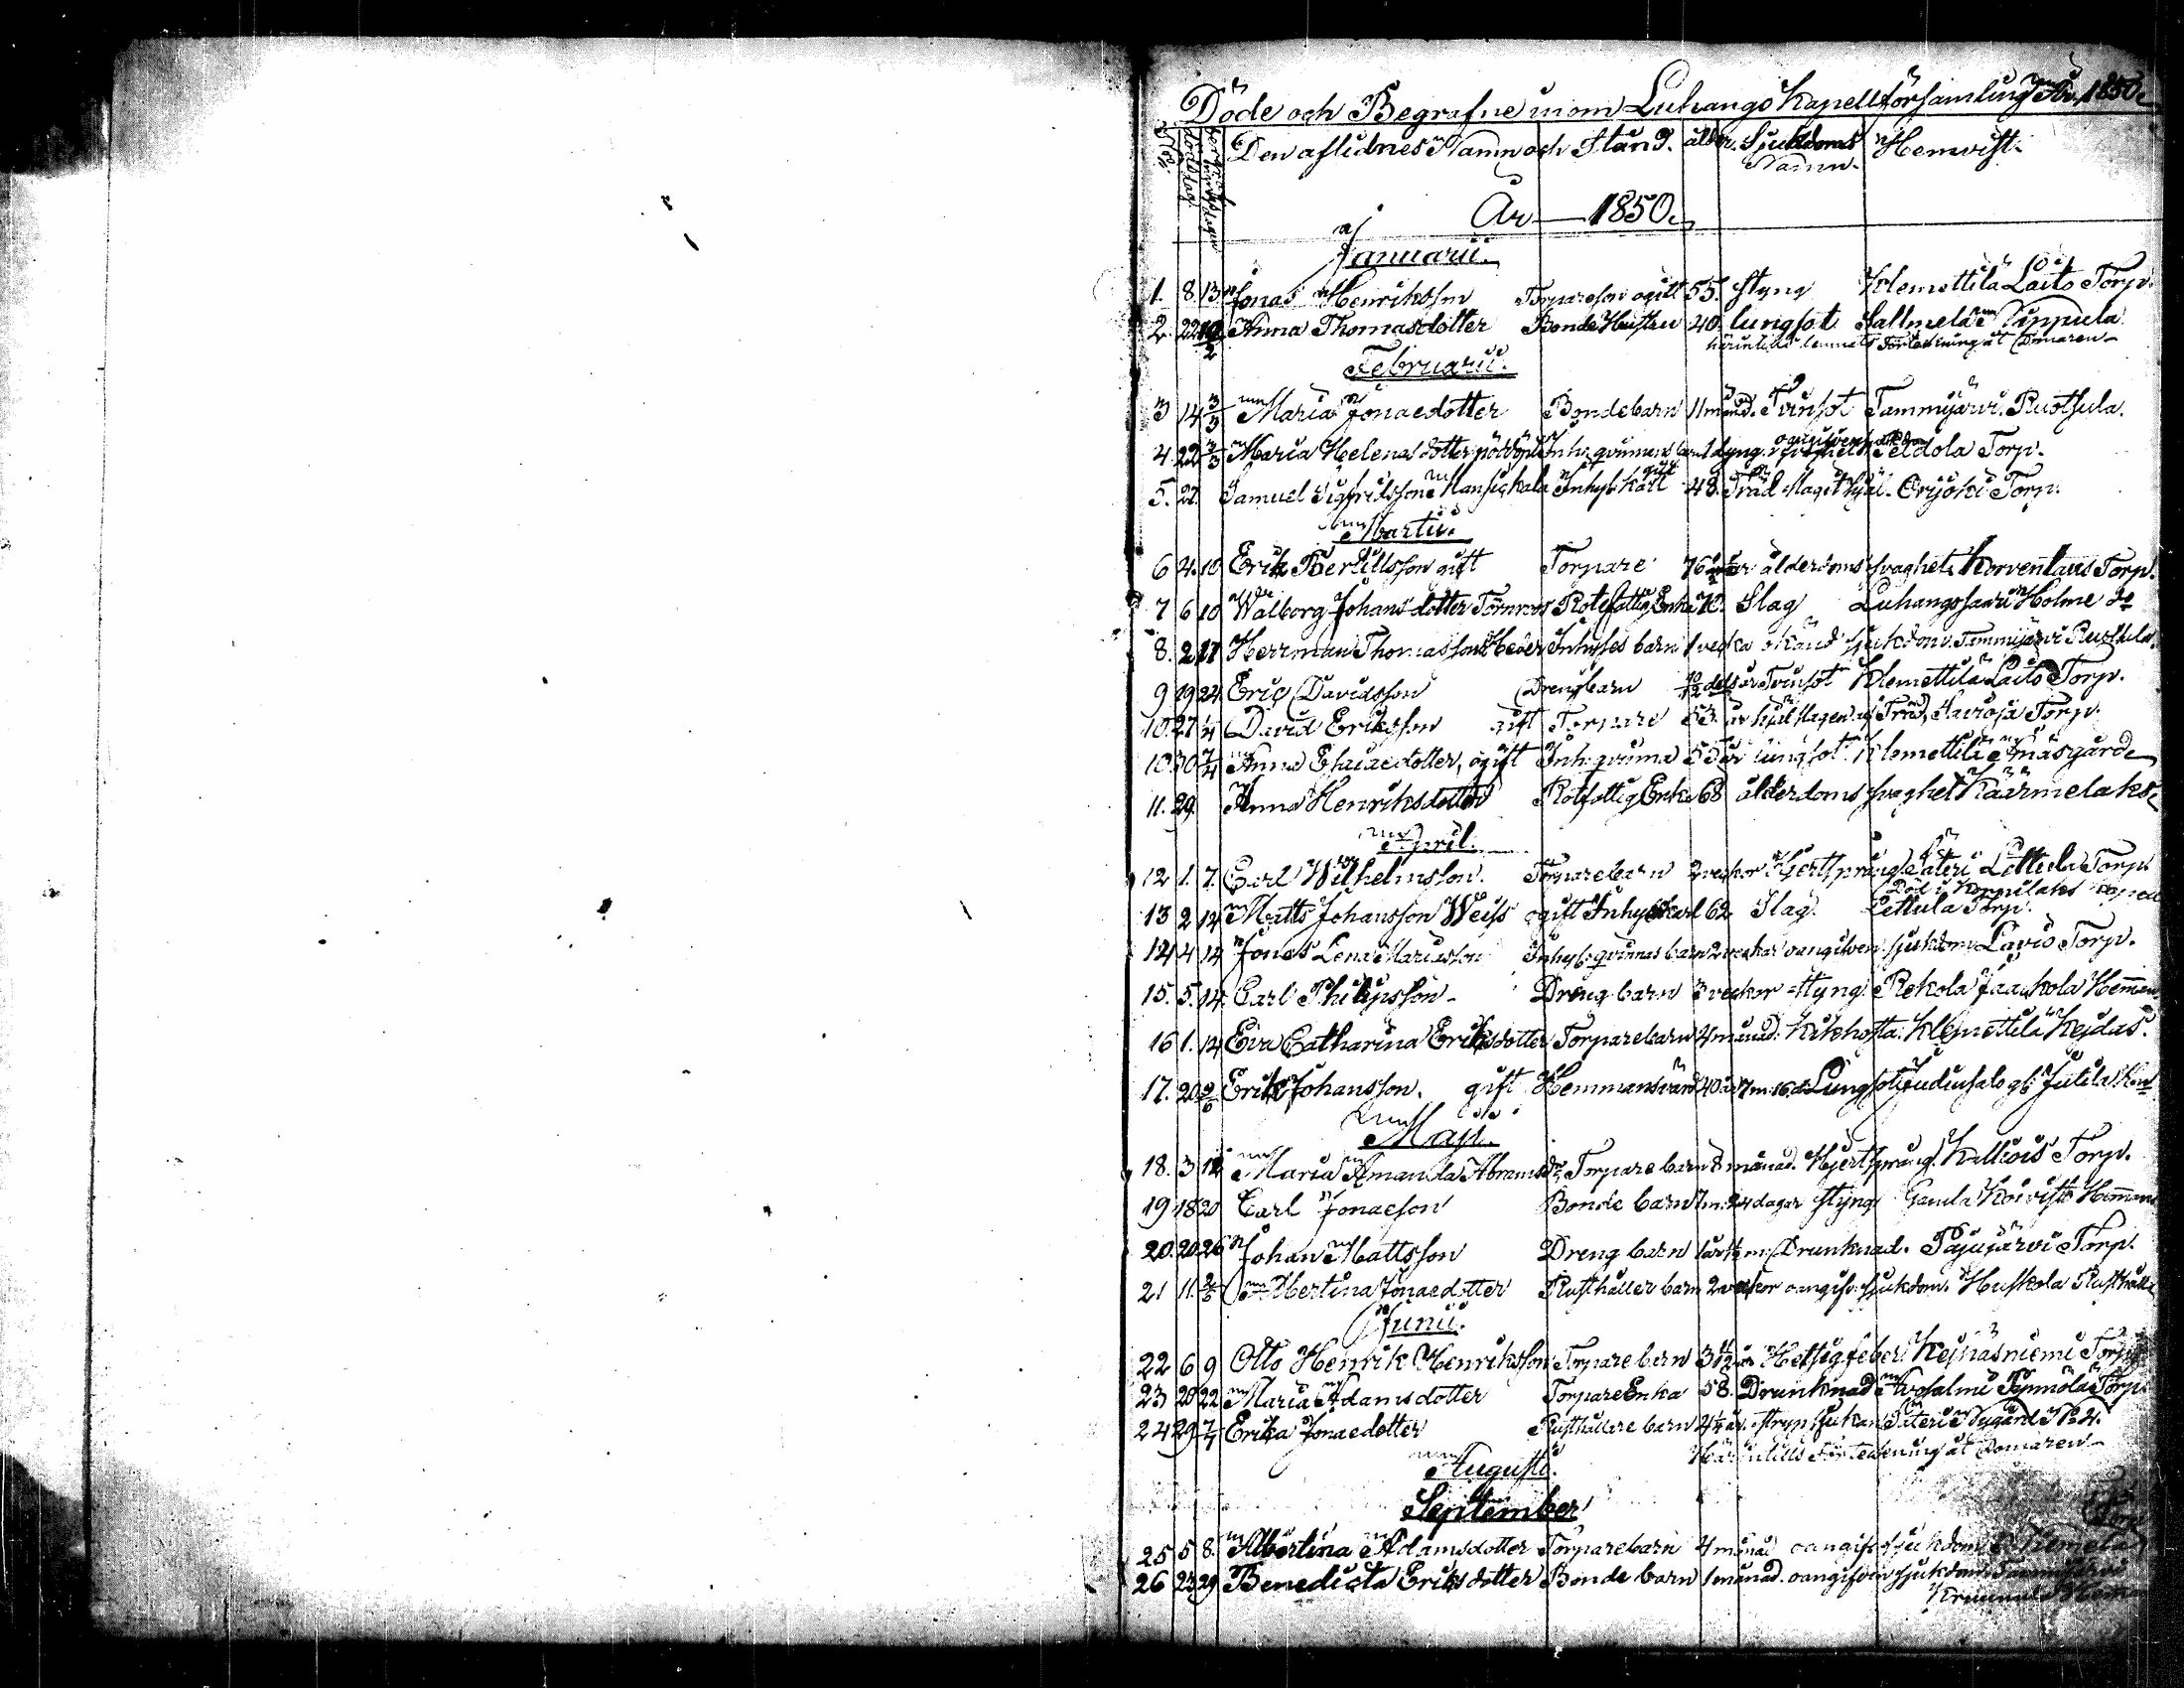 Döde och Begrafne inom Luhango Kapellförsamling År 1850.
N:o dödsdag Den aflidnes Namn och Stånd. ålder. Sjukdoms Namn. Hemvist.
År 1850.
Januarii.
1. 8. 13. Jonas Henriksson Torpareson ogift 55. styng Klemettilä Laito Torp.
2. 22 10/2 Anna Thomasdotter Bonde Hustru 40. lungsot Sallmela Nippula
härintills lemnats Förteckning åt Domaren
Februarii.
3 14 3/3 Maria Jonaedotter Bondebarn 11 månd. Tvinsot Tammijärvi Ruotsula.
4 22 3/3 Maria Helenasdotter Inh: qvinnans barn 1 dygn. oangifven sjukdom Peldola Torp.
5. 22. Samuel Sigfridsson Inhys: karl gift 48. Träd slagit ihjäl. Orijoki Torp.
Martii.
6 4. 10 Erik Bertillsson gift Torpare 76 år ålderdoms svaghet. Korvenlaus Torp.
7 6 10 Walborg Johansdotter Törnroos Rotefattig Enka 70. Slag Luhangosaari Holme
8. 2 17 Herrman Thomasson Heder Inhyses barn 1 vecka okänd sjukdom. Tammijärvi Ruotsula.
9 19 24 Eric Davidsson Drengbarn 10/12 dels år Tvinsot Klemettilä Laito Torp.
10. 27 1/4 David Eriksson gift Torpare 53. år hjälslagen af Träd, Torp.
10 30 7/4 Anna Esaiaedotter, ogift Inh: qvinna 55 år lungsot. Klemettilä Smäsgård
11. 29. Anna Henriksdotter Rotfattig Enka 68 ålderdoms svaghet Käärmelaks
April.
12 1. 7. Carl Wilhelmsson. Torparebarn 2 veckor Hjertsprång Säteri Lettula Torp
Död i Korpilaks Capell
13 2 14 Matts Johansson Weiss ogift Inhyses karl 62 Slag. Lettula Torp.
14 4 14 Jonas Lena Mariasson Inhys: qvinnas barn 2 veckor oangifven sjukdom Lavio Torp.
15. 5. 14. Carl Philipsson Dreng barn 3 veckor styng. Rekola Jaakkola Hemman
16 1. 14 Eva Catharina Eriksdotter Torparebarn 4 månad. Kikhosta Klemettilä Keidas.
17. 20 2/6 Erik Johansson. gift Hemmansvärd 40 år 7 m: 16 d: Lungsot Judinsalo Jutila
Maji.
18. 3 12 Maria Amanda Abramsd:r Torpare barn 8 månad. Hjertsprång. Kallois Torp.
19 18 20 Carl Jonaeson Bonde barn 7 m: 24 dagar styng Gamla Koivisto Hemman
20. 20 26 Johan Mattsson Dreng barn 1 år m: Drunknad. Pajujärvi Torp.
21 11. 2/6 Albertina Jonaedotter Rusthållar barn 2 veckor oangifv: sjukdom. Huskola Rusthåll
Junii.
22 6 9 Otto Henrik Henriksson Torpare barn 3 1/2 år Hetsig feber. Keihäsniemi Torp
23 20 22 Maria Adamsdotter Torpare Enka 58. Drunknad Avosalmi Torp.
24 29 7/7 Erika Jonaedotter Rusthållare barn 4 1/2 år. strypsjukan Säteri Nygård N:o 4.
Härintills Förteckning åt Domaren
Augusti.
September
Torp
25 5 8. Albertina Adamsdotter Torparebarn 4 månad oangifv: sjukdom
26 23 29 Benedicta Eriksdotter Bonde barn 1 månad. oangifven sjukdom. Tammijärvi